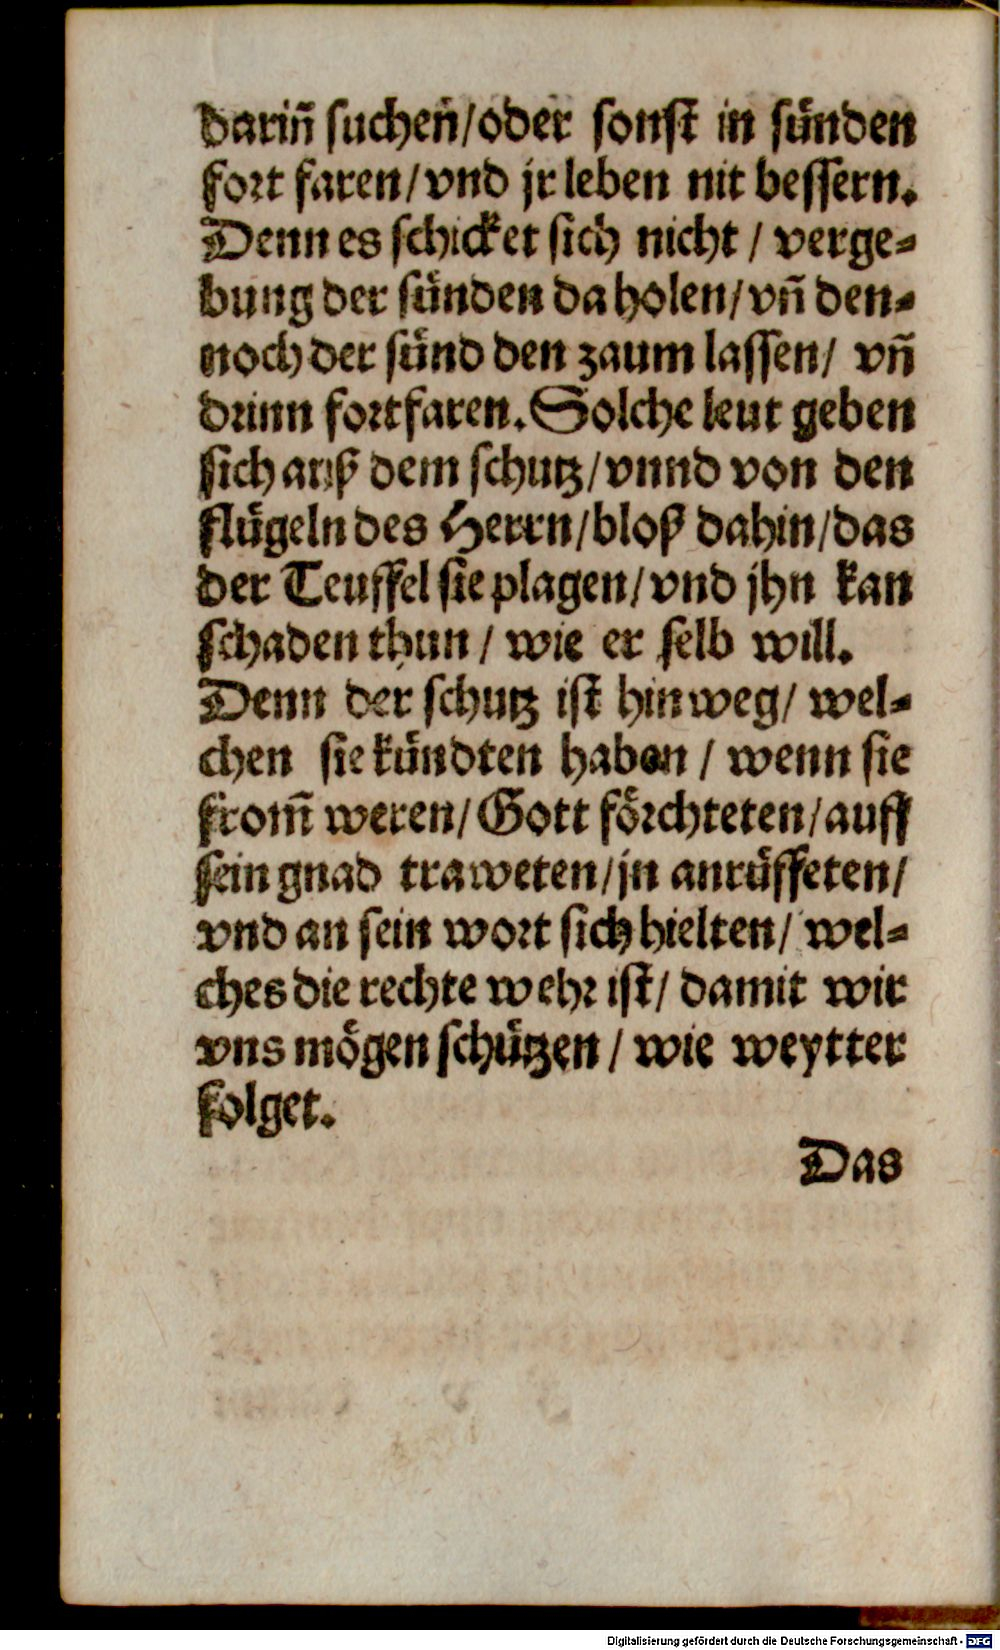 dariñ suchen/oder sonst in sünden
fort faren/vnd jr leben nit bessern.
Denn es schicket sich nicht / verge-
bung der sünden da holen/vñ den-
noch der sünd den zaum lassen/ vñ
drinn fortfaren. Solche leut geben
sich auß dem schutz/vnnd von den
flügeln des Herrn/bloß dahin/das
der Teuffel sie plagen/vnd jhn kan
schaden thun / wie er selb will.
Denn der schutz ist hinweg/ wel-
chen sie kündten haben / wenn sie
from̃ weren/Gott förchteten/auff
sein gnad traweten/jn anrüffeten/
vnd an sein wort sich hielten/ wel-
ches die rechte wehr ist/ damit wir
vns mögen schützen / wie weytter
folget.
Das
Digitalisierung gefördert durch die Deutsche Forschungsgemeinschaft - DFG